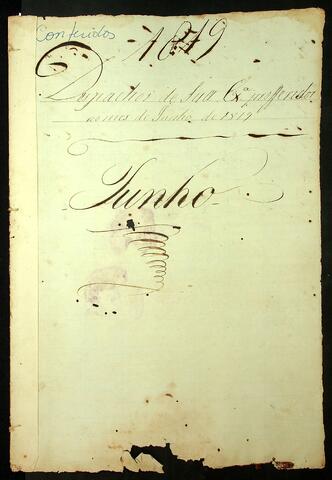 Conferidos
1849
Despachos de Sua Ex.ª proferidos
no mez de Junho de 1849
Junho